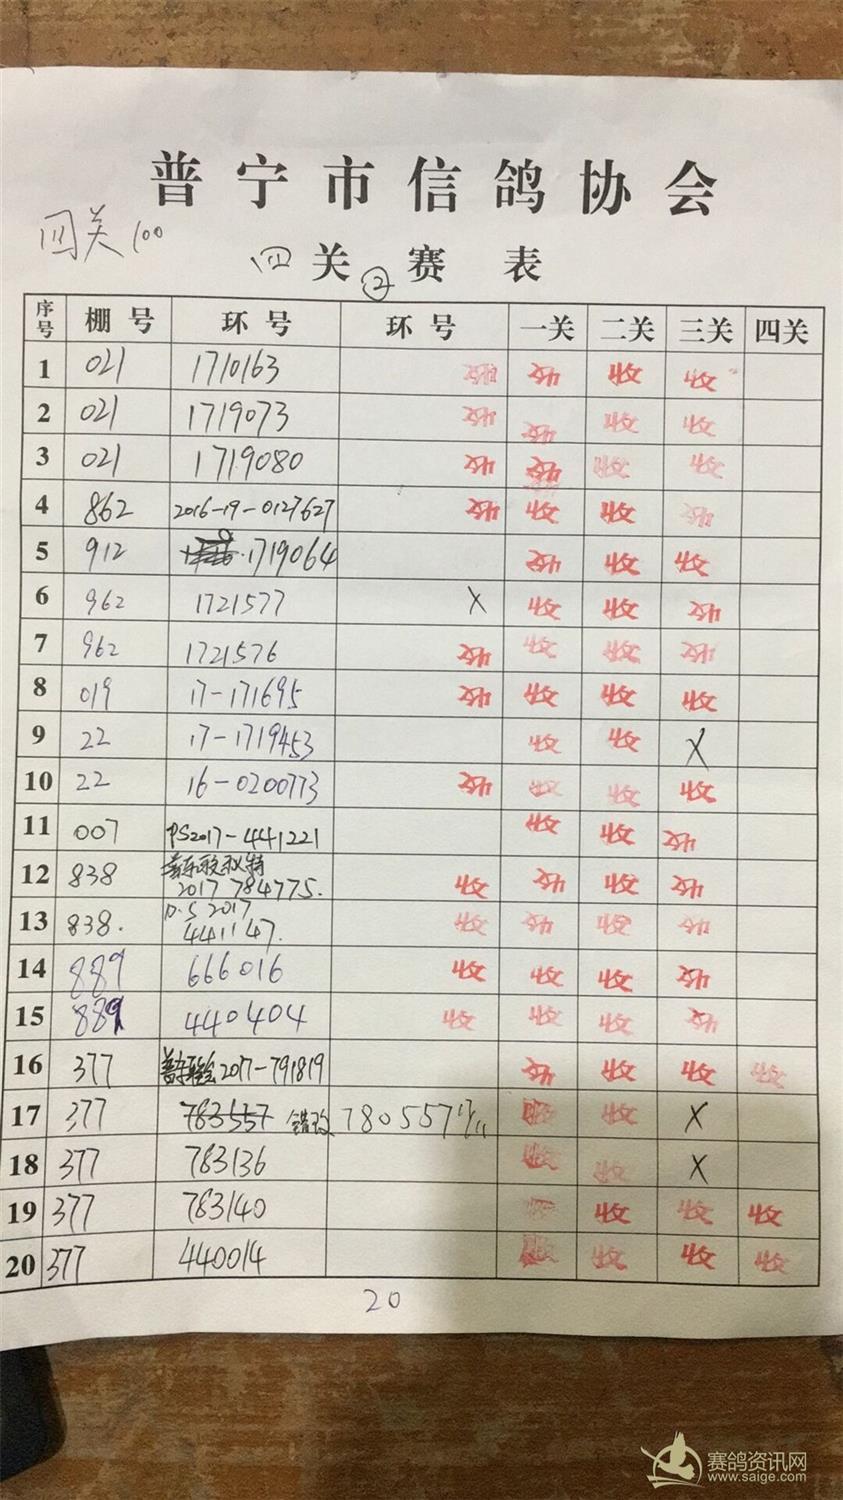 普宁市信鸽协会
四关100
四关②赛表
序号 棚号 环号 环号 一关 二关 三关 四关
1 021 1710163 收 收 收 收
2 021 1719073 收 收 收 收
3 021 1719080 收 收 收 收
4 862 2016-19-0127627 收 收 收 收
5 912 1719064 收 收 收
6 962 1721577 X 收 收 收
7 962 1721576 收 收 收 收
8 019 17-171695 收 收 收 收
9 22 17-1719453 收 收 X
10 22 16-0200773 收 收 收 收
11 007 PS2017-441221 收 收 收
12 838 2017 784775. 收 收 收 收
13 838. P.S 2017 441147. 收 收 收 收
14 889 666016 收 收 收 收
15 889 440404 收 收 收 收
16 377 2017-791819 收 收 收 收
17 377 783557 错改 780557 收 收 X
18 377 783136 收 收 X
19 377 783140 收 收 收 收
20 377 440014 收 收 收 收
20
赛鸽资讯网
www.saige.com